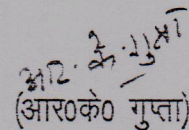 आर. के. गुप्ता
(आर०के० गुप्ता)